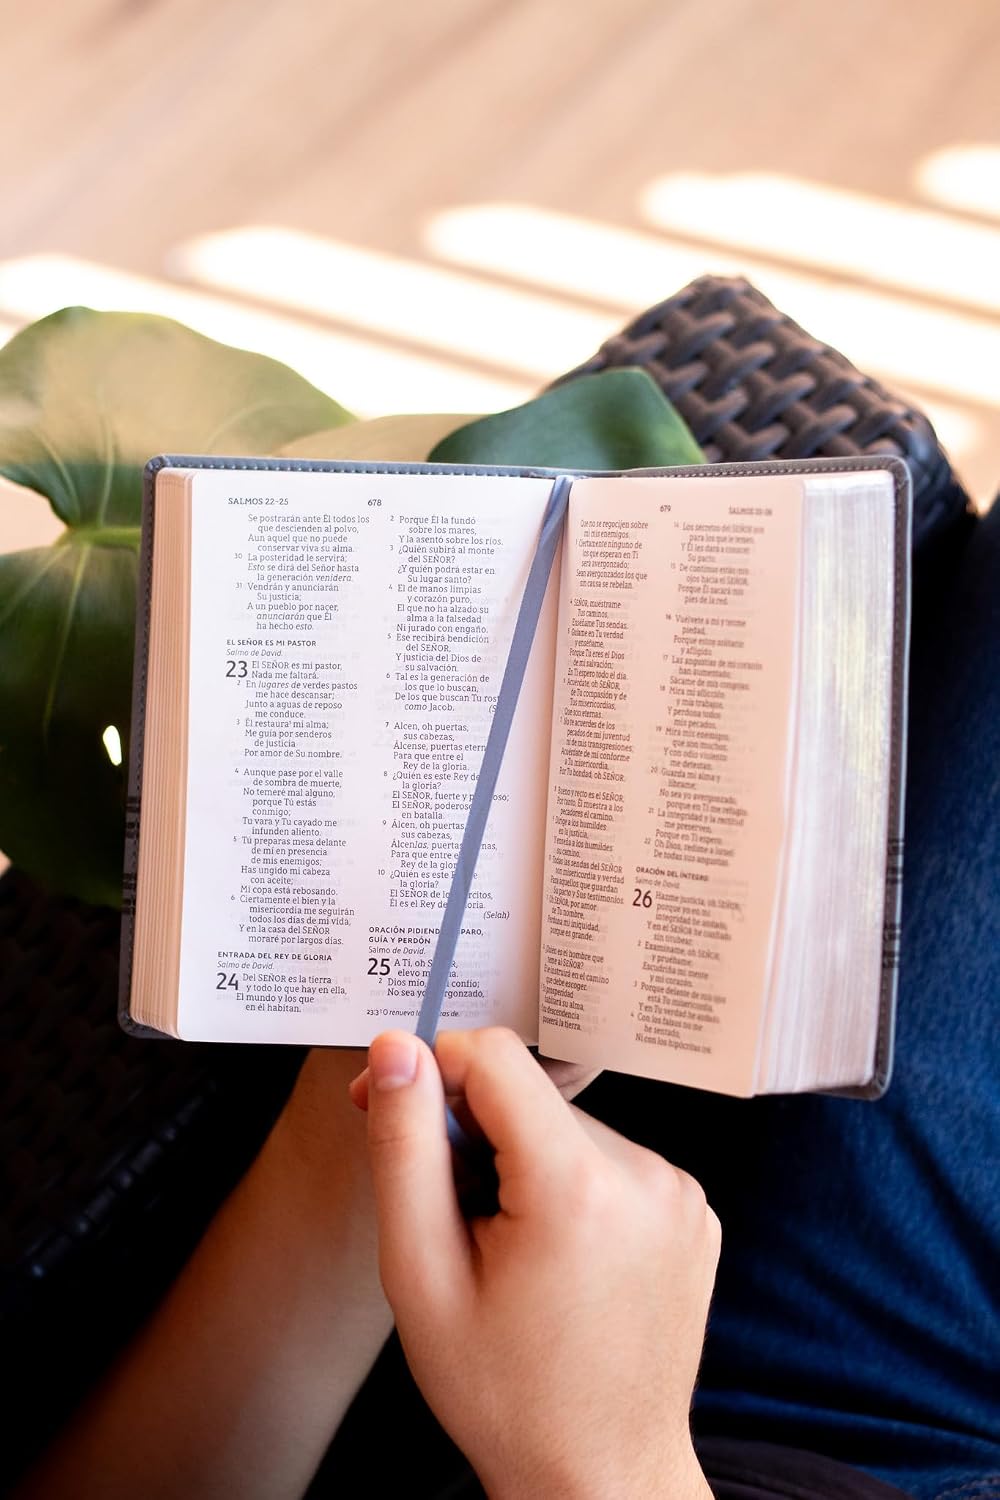 SALMOS 22–25
678
Se postrarán ante Él todos los
que descienden al polvo,
Aun aquel que no puede
conservar viva su alma.
30 La posteridad le servirá;
Esto se dirá del Señor hasta
la generación venidera.
31 Vendrán y anunciarán
Su justicia;
A un pueblo por nacer,
anunciarán que Él
ha hecho esto.
EL SEÑOR ES MI PASTOR
Salmo de David.
23 El SEÑOR es mi pastor,
Nada me faltará.
2 En lugares de verdes pastos
me hace descansar;
Junto a aguas de reposo
me conduce.
3 Él restaura¹ mi alma;
Me guía por senderos
de justicia
Por amor de Su nombre.
4 Aunque pase por el valle
de sombra de muerte,
No temeré mal alguno,
porque Tú estás
conmigo;
Tu vara y Tu cayado me
infunden aliento.
5 Tú preparas mesa delante
de mí en presencia
de mis enemigos;
Has ungido mi cabeza
con aceite;
Mi copa está rebosando.
6 Ciertamente el bien y la
misericordia me seguirán
todos los días de mi vida,
Y en la casa del SEÑOR
moraré por largos días.
ENTRADA DEL REY DE GLORIA
Salmo de David.
24 Del SEÑOR es la tierra
y todo lo que hay en ella,
El mundo y los que
en él habitan.
2 Porque Él la fundó
sobre los mares,
Y la asentó sobre los ríos.
3 ¿Quién subirá al monte
del SEÑOR?
¿Y quién podrá estar en
Su lugar santo?
4 El de manos limpias
y corazón puro,
El que no ha alzado su
alma a la falsedad
Ni jurado con engaño.
5 Ese recibirá bendición
del SEÑOR,
Y justicia del Dios de
su salvación.
6 Tal es la generación de
los que lo buscan,
De los que buscan Tu
como Jacob.
7 Alcen, oh puertas,
sus cabezas,
Álcense, puertas
Para que entre el
Rey de la gloria.
8 ¿Quién es este Rey de
la gloria?
El SEÑOR, fuerte y
El SEÑOR, poderoso
en batalla.
9 Alcen, oh puertas,
sus cabezas,
Álcenlas, puertas
Para que entre el
Rey de la gloria.
10 ¿Quién es este
la gloria?
El SEÑOR de los
Él es el Rey de gloria.
(Selah)
ORACIÓN PIDIENDO
GUÍA Y PERDÓN
Salmo de David.
25 A Ti, oh
elevo mi alma.
2 Dios mío, confío;
No sea yo avergonzado,
23:3 ¹ O renueva
679
Que no se regocijen sobre
mí mis enemigos.
3 Ciertamente ninguno de
los que esperan en Ti
será avergonzado;
Sean avergonzados los que
sin causa se rebelan.
4 SEÑOR, muéstrame
Tus caminos,
Enséñame Tus sendas.
5 Guíame en Tu verdad
y enséñame,
Porque Tú eres el Dios
de mi salvación;
En Ti espero todo el día.
6 Acuérdate, oh SEÑOR,
de Tu compasión y de
Tus misericordias,
Que son eternas.
7 No te acuerdes de los
pecados de mi juventud
ni de mis transgresiones;
Acuérdate de mí conforme
a Tu misericordia,
Por Tu bondad, oh SEÑOR.
8 Bueno y recto es el SEÑOR;
Por tanto, Él muestra a los
pecadores el camino.
9 Dirige a los humildes
en la justicia,
Y enseña a los humildes
su camino.
10 Todas las sendas del SEÑOR
son misericordia y verdad
Para aquellos que guardan
Su pacto y Sus testimonios.
11 Oh SEÑOR, por amor
de Tu nombre,
Perdona mi iniquidad,
porque es grande.
12 ¿Quién es el hombre que
teme al SEÑOR?
Él le instruirá en el camino
que debe escoger.
En prosperidad
habitará su alma,
Y su descendencia
poseerá la tierra.
14 Los secretos del SEÑOR son
para los que le temen,
Y Él les dará a conocer
Su pacto.
15 De continuo están mis
ojos hacia el SEÑOR,
Porque Él sacará mis
pies de la red.
16 Vuélvete a mí y tenme
piedad,
Porque estoy solitario
y afligido.
17 Las angustias de mi corazón
han aumentado;
Sácame de mis congojas.
18 Mira mi aflicción
y mis trabajos,
Y perdona todos
mis pecados.
19 Mira mis enemigos,
que son muchos,
Y con odio violento
me detestan.
20 Guarda mi alma y
líbrame;
No sea yo avergonzado,
porque en Ti me refugio.
21 La integridad y la rectitud
me preserven,
Porque en Ti espero.
22 Oh Dios, redime a Israel
De todas sus angustias.
ORACIÓN DEL ÍNTEGRO
Salmo de David.
26 Hazme justicia, oh SEÑOR,
porque yo en mi
integridad he andado,
Y en el SEÑOR he confiado
sin titubear.
2 Examíname, oh SEÑOR,
y pruébame;
Escudriña mi mente
y mi corazón.
3 Porque delante de mis ojos
está Tu misericordia,
Y en Tu verdad he andado.
4 Con los falsos no me
he sentado,
Ni con los hipócritas iré.